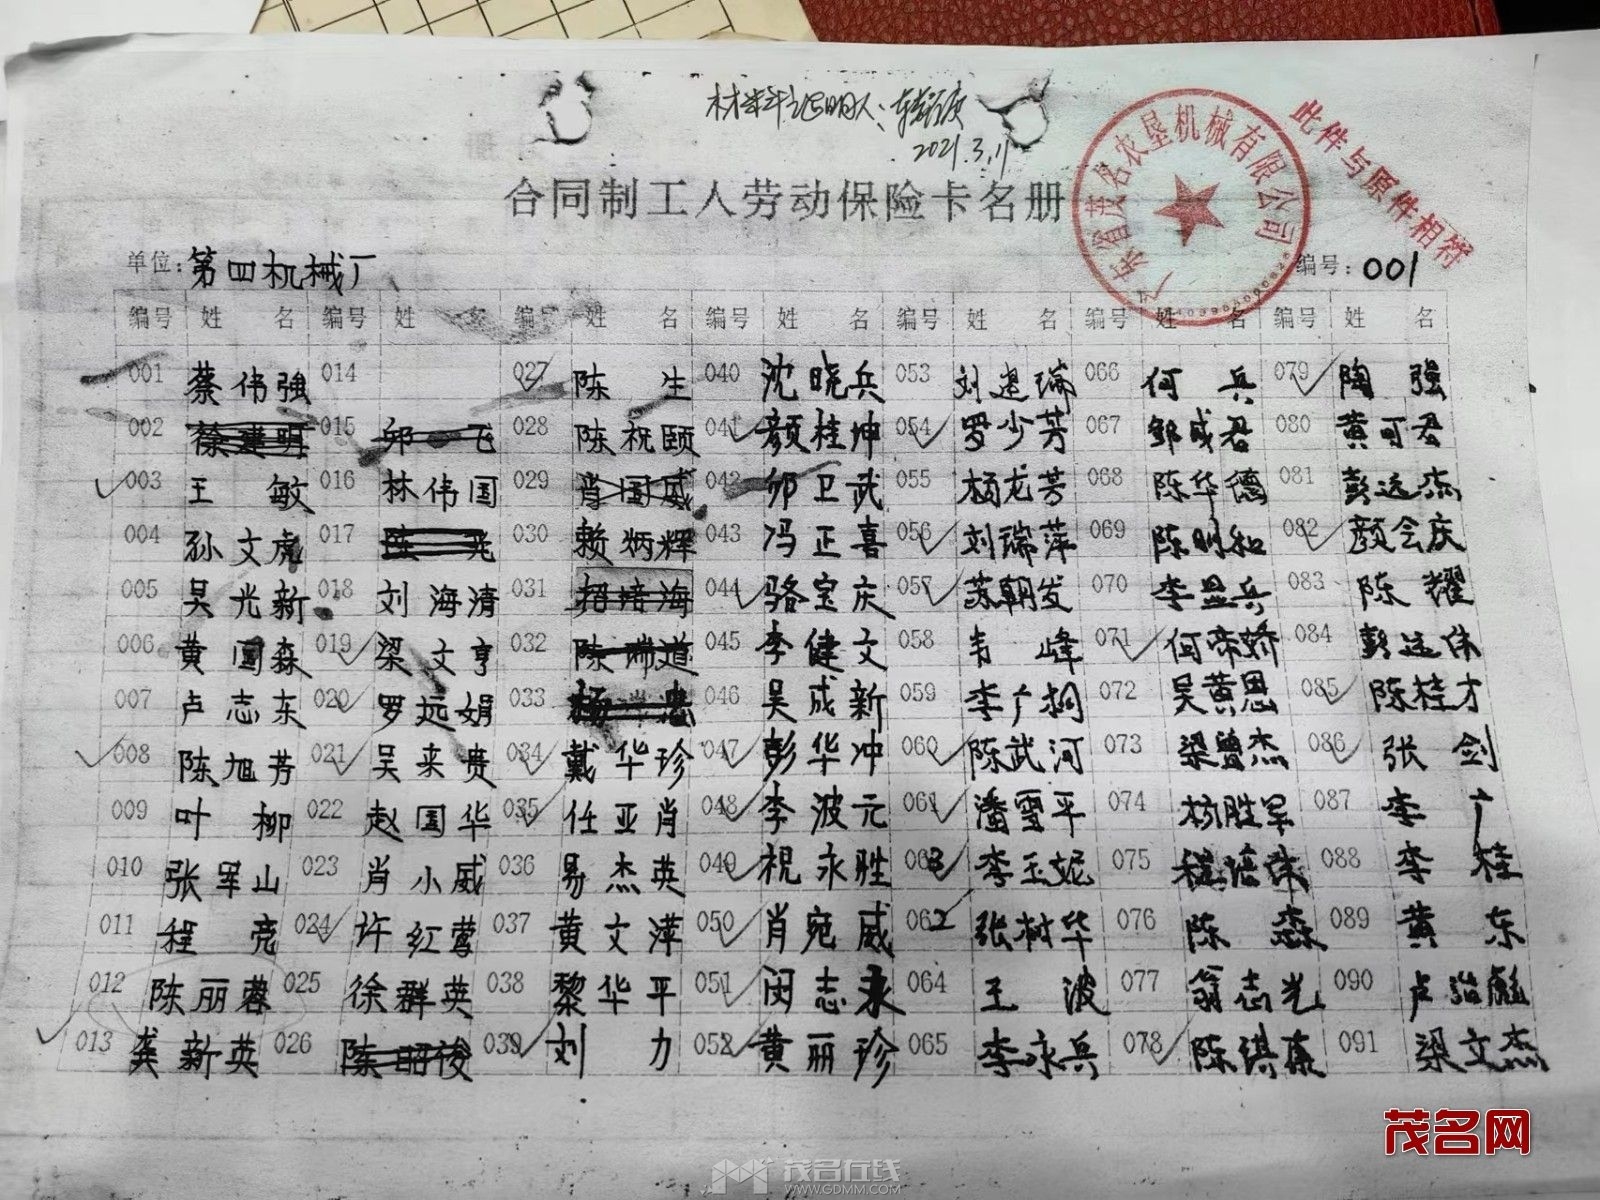 材料证明人:
2021.3.11
合同制工人劳动保险卡名册
广东省茂名农垦机械有限公司
此件与原件相符
单位:第四机械厂 编号:001
编号 姓名 编号 姓名 编号 姓名 编号 姓名 编号 姓名 编号 姓名 编号 姓名
001 蔡伟强 014 027 陈生 040 沈晓兵 053 刘建瑞 066 何兵 079 陶强
002 徐建明 015 邬飞 028 陈祝颐 041 颜桂坤 054 罗少芳 067 邹成君 080 黄可君
003 王敏 016 林伟国 029 肖国威 042 卯卫武 055 杨龙芳 068 陈华德 081 彭远杰
004 孙文虎 017 陈光 030 赖炳辉 043 冯正喜 056 刘瑞萍 069 陈明和 082 颜会庆
005 吴光新 018 刘海清 031 招培海 044 骆宝庆 057 苏朝发 070 李显兵 083 陈耀
006 黄国森 019 梁文亨 032 陈瑞道 045 李健文 058 韦峰 071 何帝娇 084 彭远伟
007 卢志东 020 罗远娟 033 杨忠 046 吴成新 059 李广桐 072 吴黄恩 085 陈桂才
008 陈旭芳 021 吴来贵 034 戴华珍 047 彭华冲 060 陈武河 073 梁曾杰 086 张剑
009 叶柳 022 赵国华 035 任亚肖 048 李波元 061 潘雪平 074 杨胜军 087 李广
010 张军山 023 肖小威 036 易杰英 049 祝永胜 063 李玉妮 075 程培伟 088 李桂
011 程亮 024 许红莺 037 黄文萍 050 肖宛威 062 张树华 076 陈森 089 黄东
012 陈丽蓉 025 徐群英 038 黎华平 051 闵志永 064 王波 077 翁志光 090 卢诒彪
013 龚新英 026 陈昭俊 039 刘力 052 黄丽珍 065 李永兵 078 陈琪森 091 梁文杰
茂名网
茂名在线
WWW.GDMM.COM